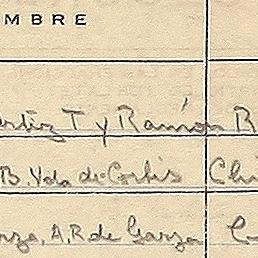 MBRE
rtiz T y Ramón R
B. Vda de Cortis Chi
rza, A.R de Garza C